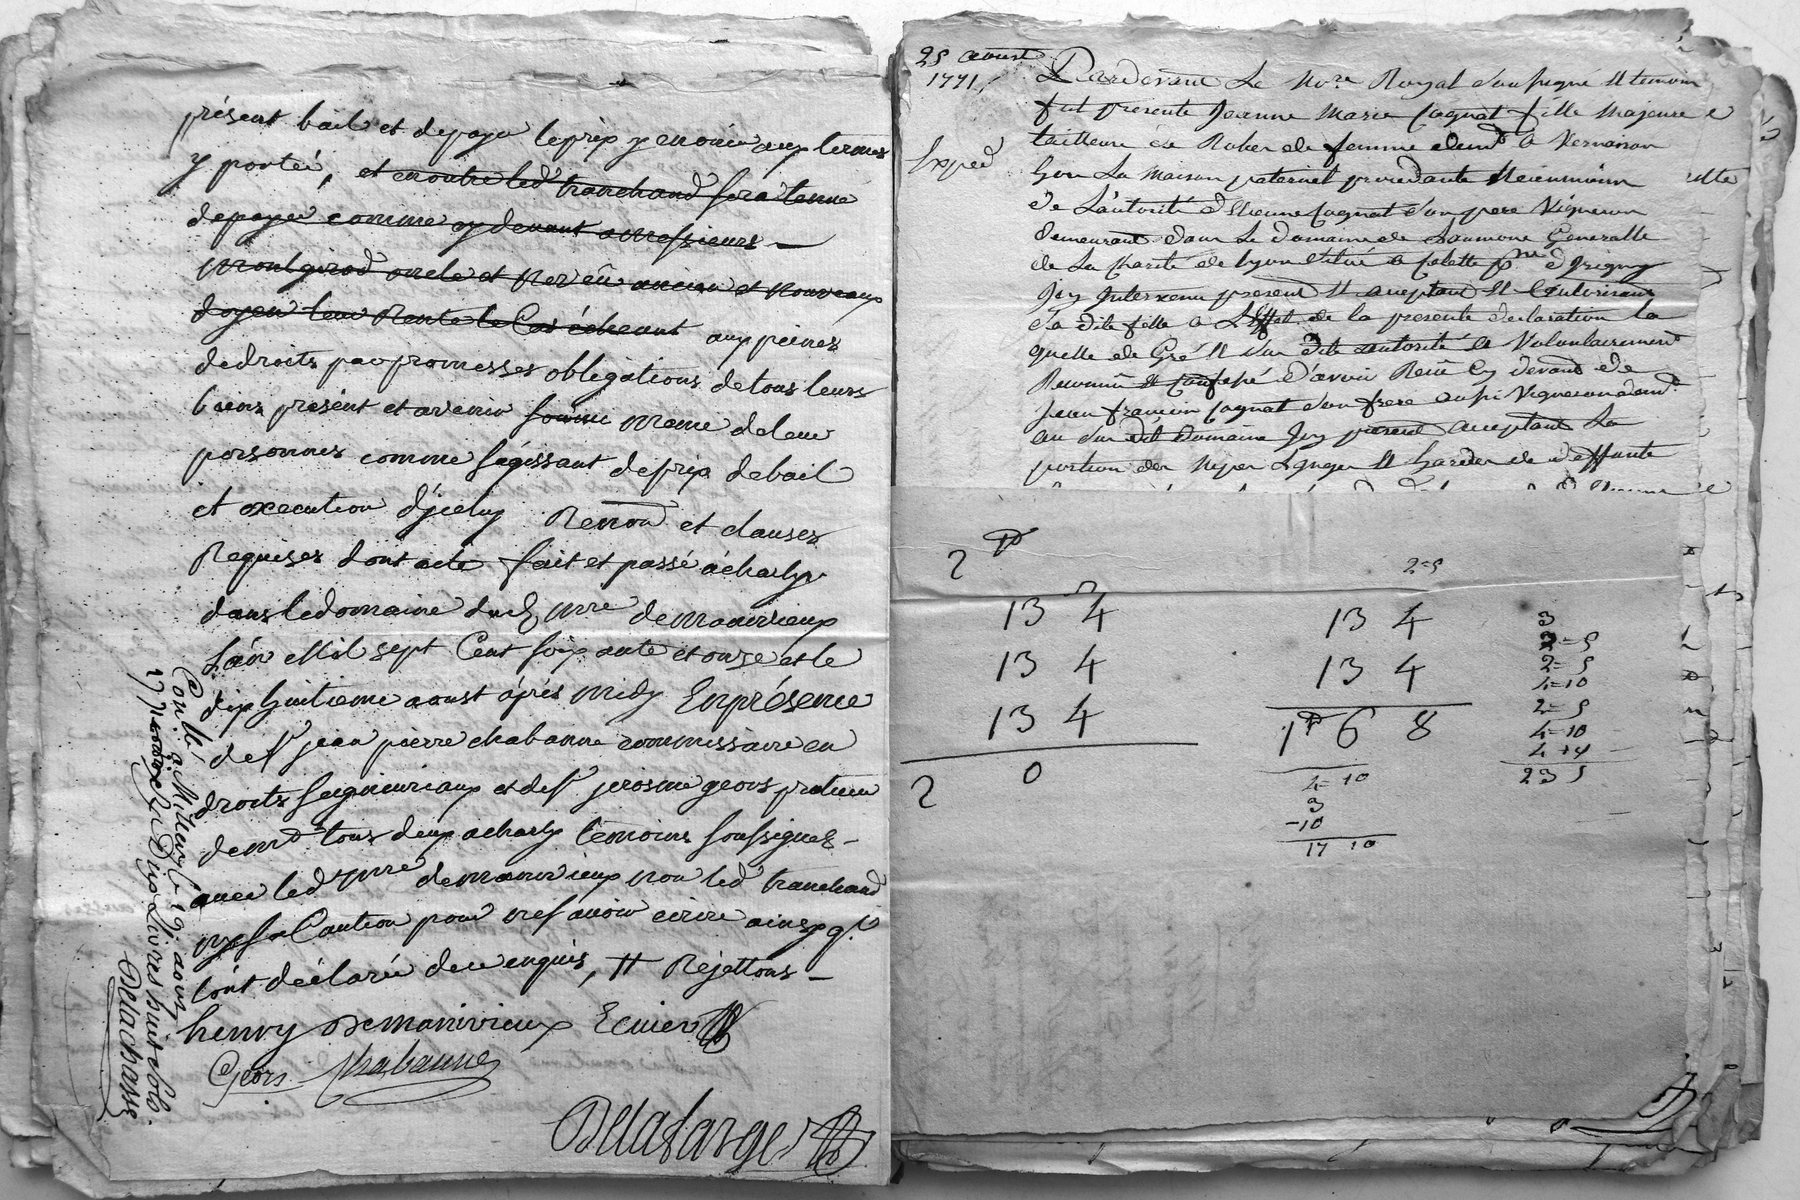 présent bail et de payer le prix y énoncé aux termes
y porteé, et en outre led tranchand sera tenue
de payer comme cy devant a messieurs
montgirod oncle et neveu ancien et nouveaux
doyen leur Rente le Cas écheant aux peines
de droits par promesses obligations de tous leurs
biens présent et avenir même de leur
personnes comme s'agissant de prix de bail
et execution d'jceluy Renon et clauses
Requises dont acte fait et passé à charly
dans le domaine dud de manivieux
L'an Mil sept Cent soixante et onze et le
dix huitieme aoust aprés midy En présence
de sr jean pierre chabanne commissaire en
droits seigneuriaux et de sr jerosme geors
tous deux a charly témoins soussignes
avec led de manivieux non led tranchand
ny sa Caution pour ne savoir écrire ainsy q.
l'ont déclarée de ce enquis, Rejettons
henry De manivieux Ecuier
Geors Chabanne
Delafarge
Conllé a Millery le 19 aoust
1771 Dix Livres huit sols
Delachasse
25 aoust
1771
Exped
Pardevant Le Nore Royal soussigné Et temoin
fut presente Jeanne Marie Cognat fille Majeure
tailleuse de Robes de femme demt a Vernaison
hors La maison paternel procedante Neanmoins
de L'autorité d'Etienne Cognat son pere Vigneron
demeurant dans Le domaine de Laumone Generalle
de La charité de Lyon situé a Colette psse d'Irigny
Jcy Intervenu present Et acceptant Et L'autorisant
sa dite fille a L'Effet de la presente declaration la
quelle de Gré Et sur dite autorité a Volontairement
Reconnu Et confessé d'avoir Reçu Cy devant de
Jean françois Cognat son frere aussi Vigneron demt
au sus dit Domaine Jcy present acceptant La
portion des Nipes Linges Et hardes de deffunte
2
13 4
13 4
13 4
2 0
2=5
13 4
13 4
1 6 8
2=10
3
-10
17 10
3
3=5
2=5
4=10
2=5
4=10
4
23 5